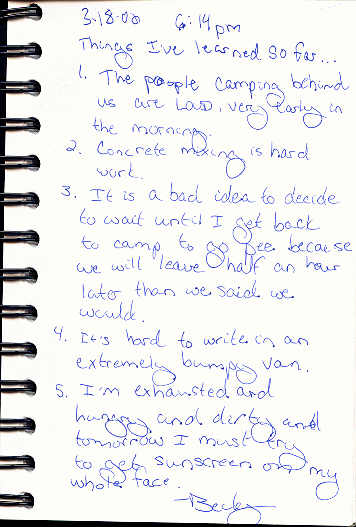 3-18-00 6:14pm
Things I've learned so far...
1. The people camping behind
us are LOUD, very early in
the morning.
2. Concrete mixing is hard
work.
3. It is a bad idea to decide
to wait until I get back
to camp to go pee because
we will leave half an hour
later than we said we
would.
4. It's hard to write in an
extremely bumpy van.
5. I'm exhausted and
hungry and dirty and
tomorrow I must try
to get sunscreen on my
whole face.
-Becky